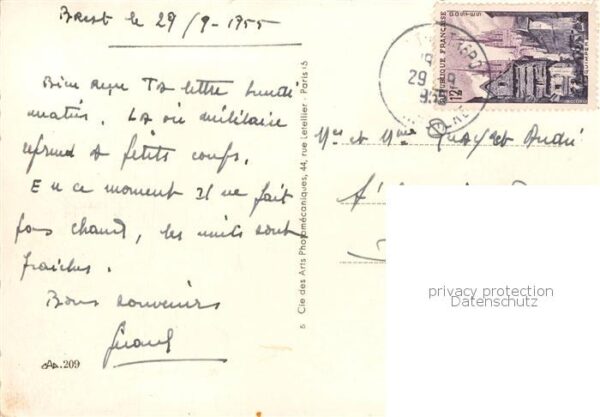 Brest le 29/9-1955
Bien reçu Ta lettre lundi
matin. La vie militaire
reprend à petits coups.
En ce moment Il ne fait
pas chaud, les nuits sont
fraîches.
Bons souvenirs
209
6 Cie des Arts Photomécaniques, 44, rue Letellier - Paris 15
RÉPUBLIQUE FRANÇAISE
12F
29 9
1955
Mr et Mme et André
privacy protection
Datenschutz